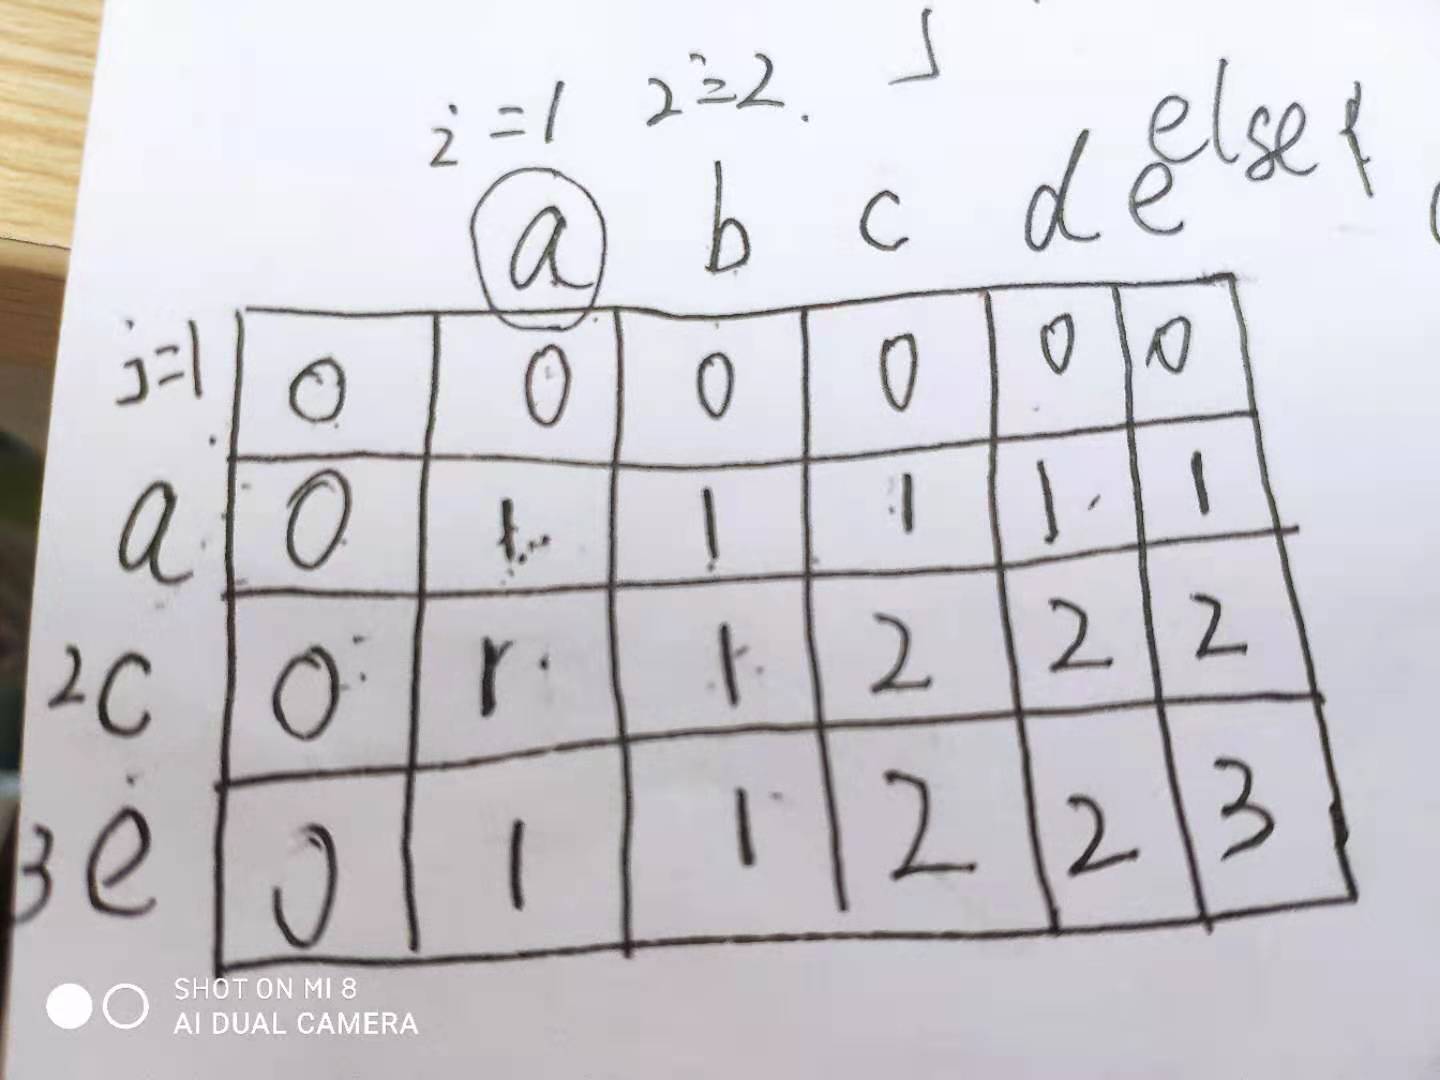 i=1 i=2.
else{
a b c d e
j=1 0 0 0 0 0 0
a 0 1 1 1 1 1
2 c 0 1 1 2 2 2
3 e 0 1 1 2 2 3
SHOT ON MI 8
AI DUAL CAMERA